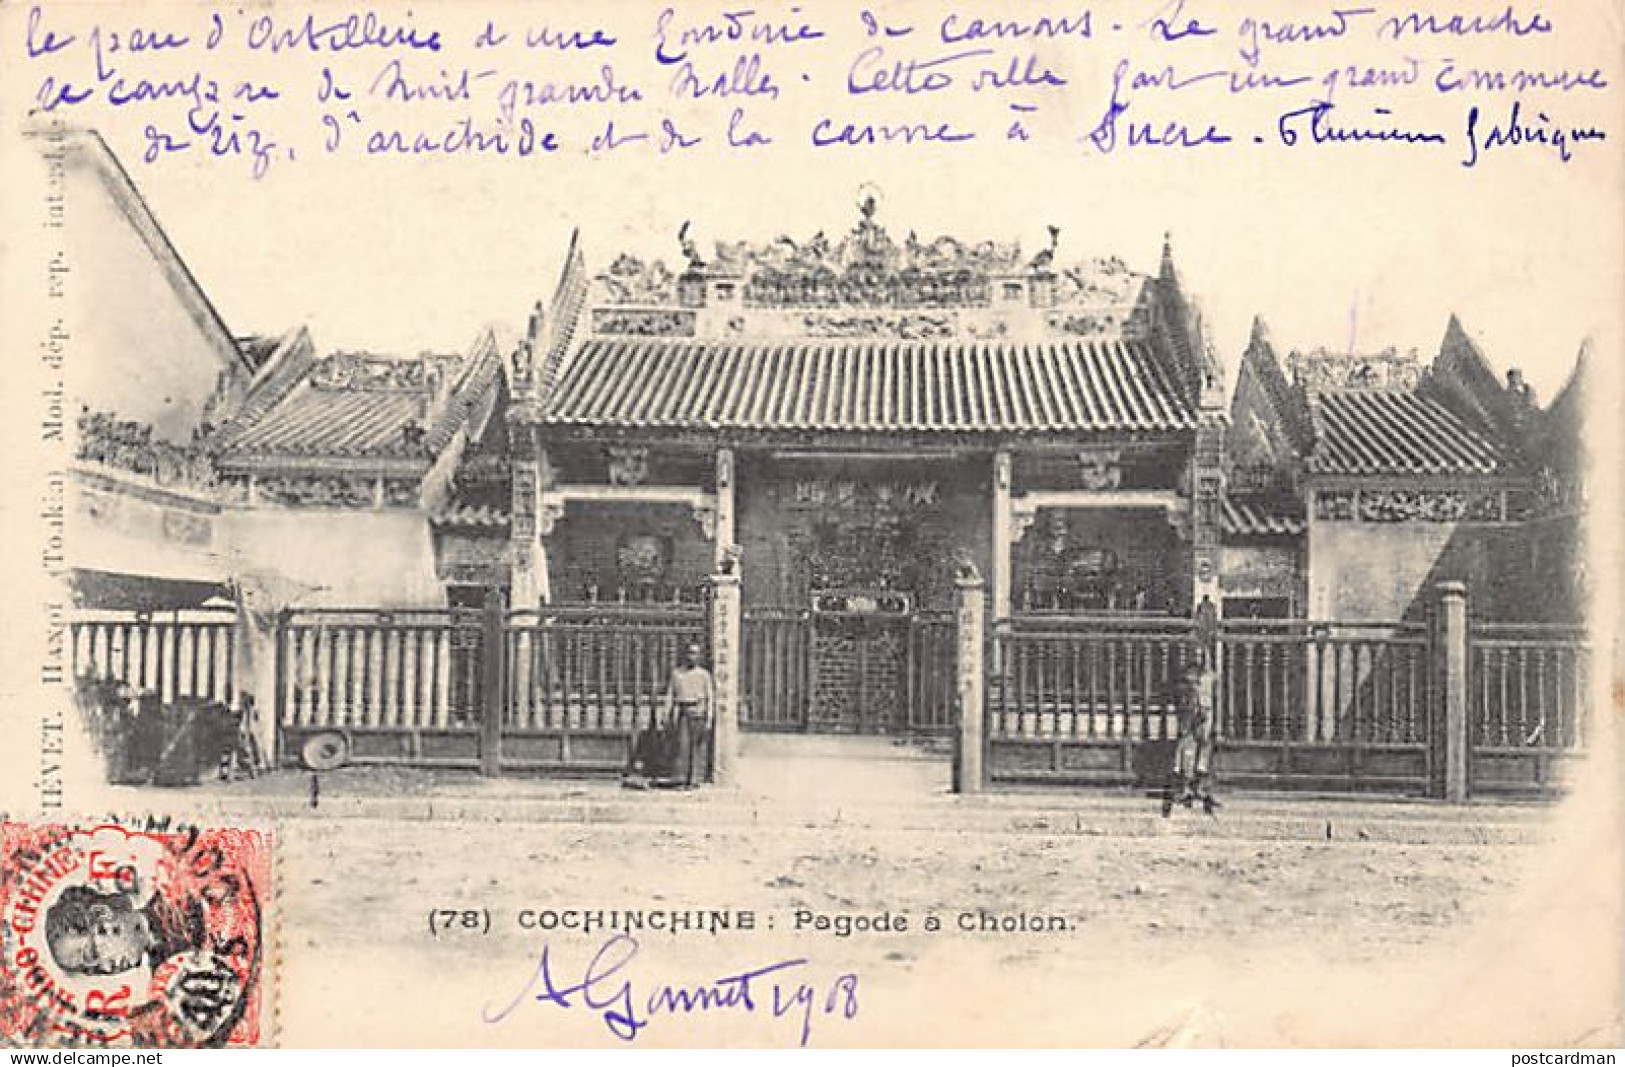 le parc d'Artillerie d'une fonderie de canons. Le grand marche
se compose de huit grandes halles. Cette ville fait un grand commerce
de riz, d'arachide et de la canne à Sucre. Plusieurs fabriques
IÉVET. HANOÏ (Tonkin) Mod. dép. rep.
INDO-CHINE
RF
(78) COCHINCHINE : Pagode à Cholon.
A Gonnet 1908
postcardman